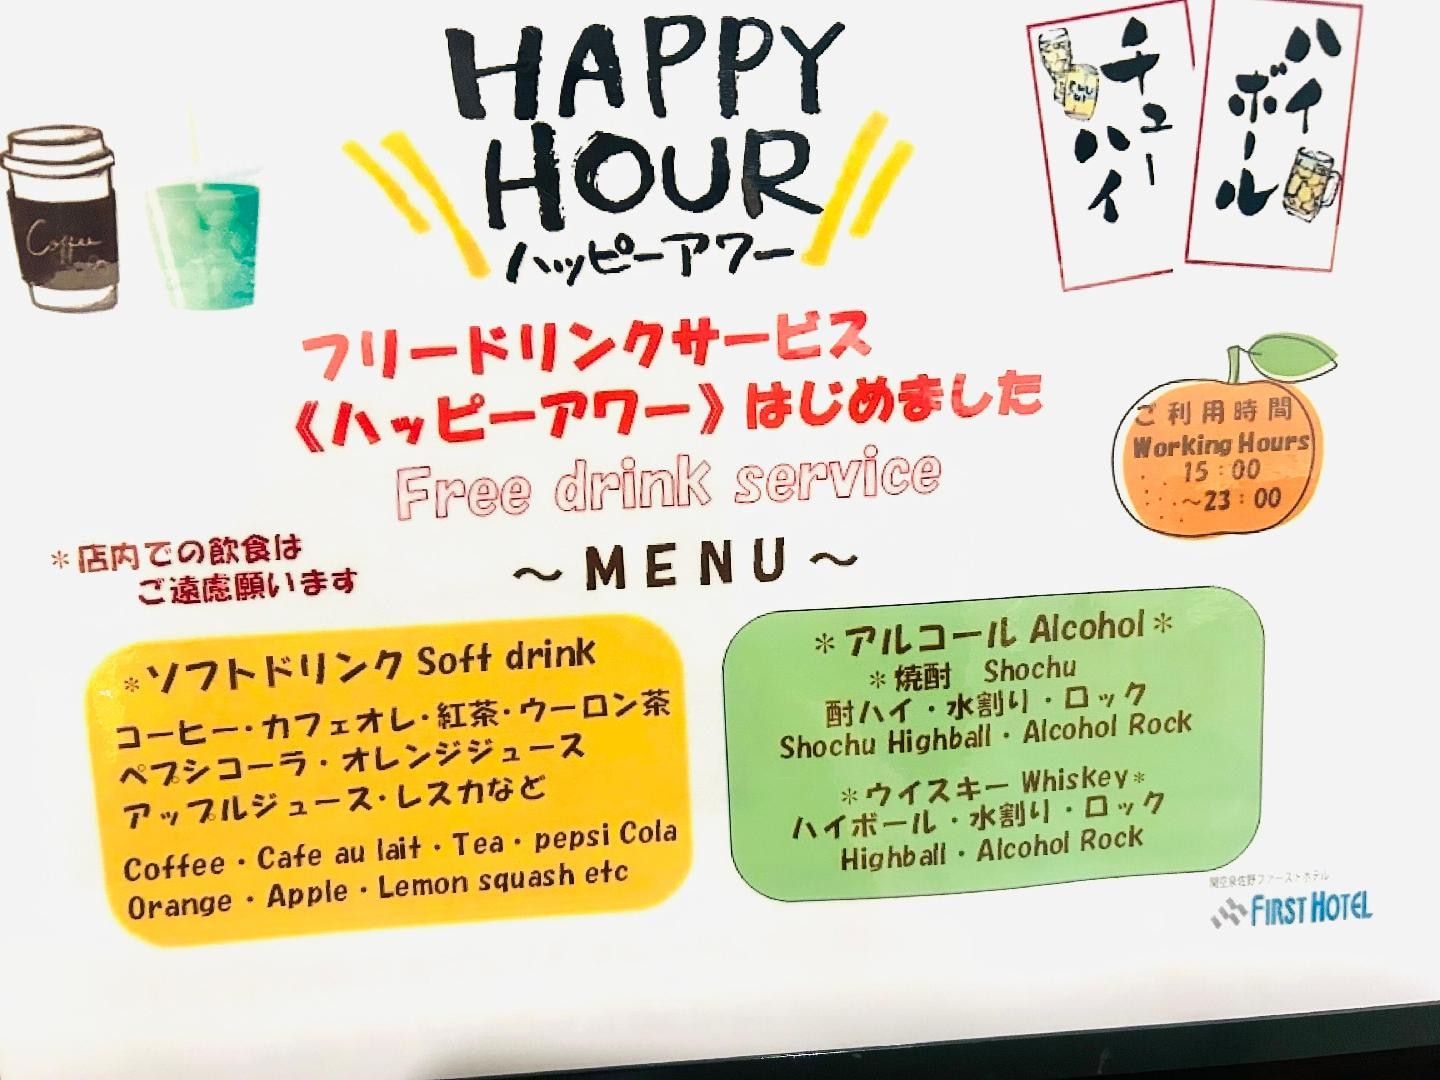 HAPPY
HOUR
ハッピーアワー
チューハイ
ハイボール
Coffee
フリードリンクサービス
《ハッピーアワー》はじめました
Free drink service
ご利用時間
Working Hours
15:00
～23:00
*店内での飲食は
ご遠慮願います
～MENU～
*ソフトドリンク Soft drink
コーヒー・カフェオレ・紅茶・ウーロン茶
ペプシコーラ・オレンジジュース
アップルジュース・レスカなど
Coffee・Cafe au lait・Tea・pepsi Cola
Orange・Apple・Lemon squash etc
*アルコール Alcohol*
*焼酎 Shochu
酎ハイ・水割り・ロック
Shochu Highball・Alcohol Rock
*ウイスキー Whiskey*
ハイボール・水割り・ロック
Highball・Alcohol Rock
関空泉佐野ファーストホテル
FIRST HOTEL